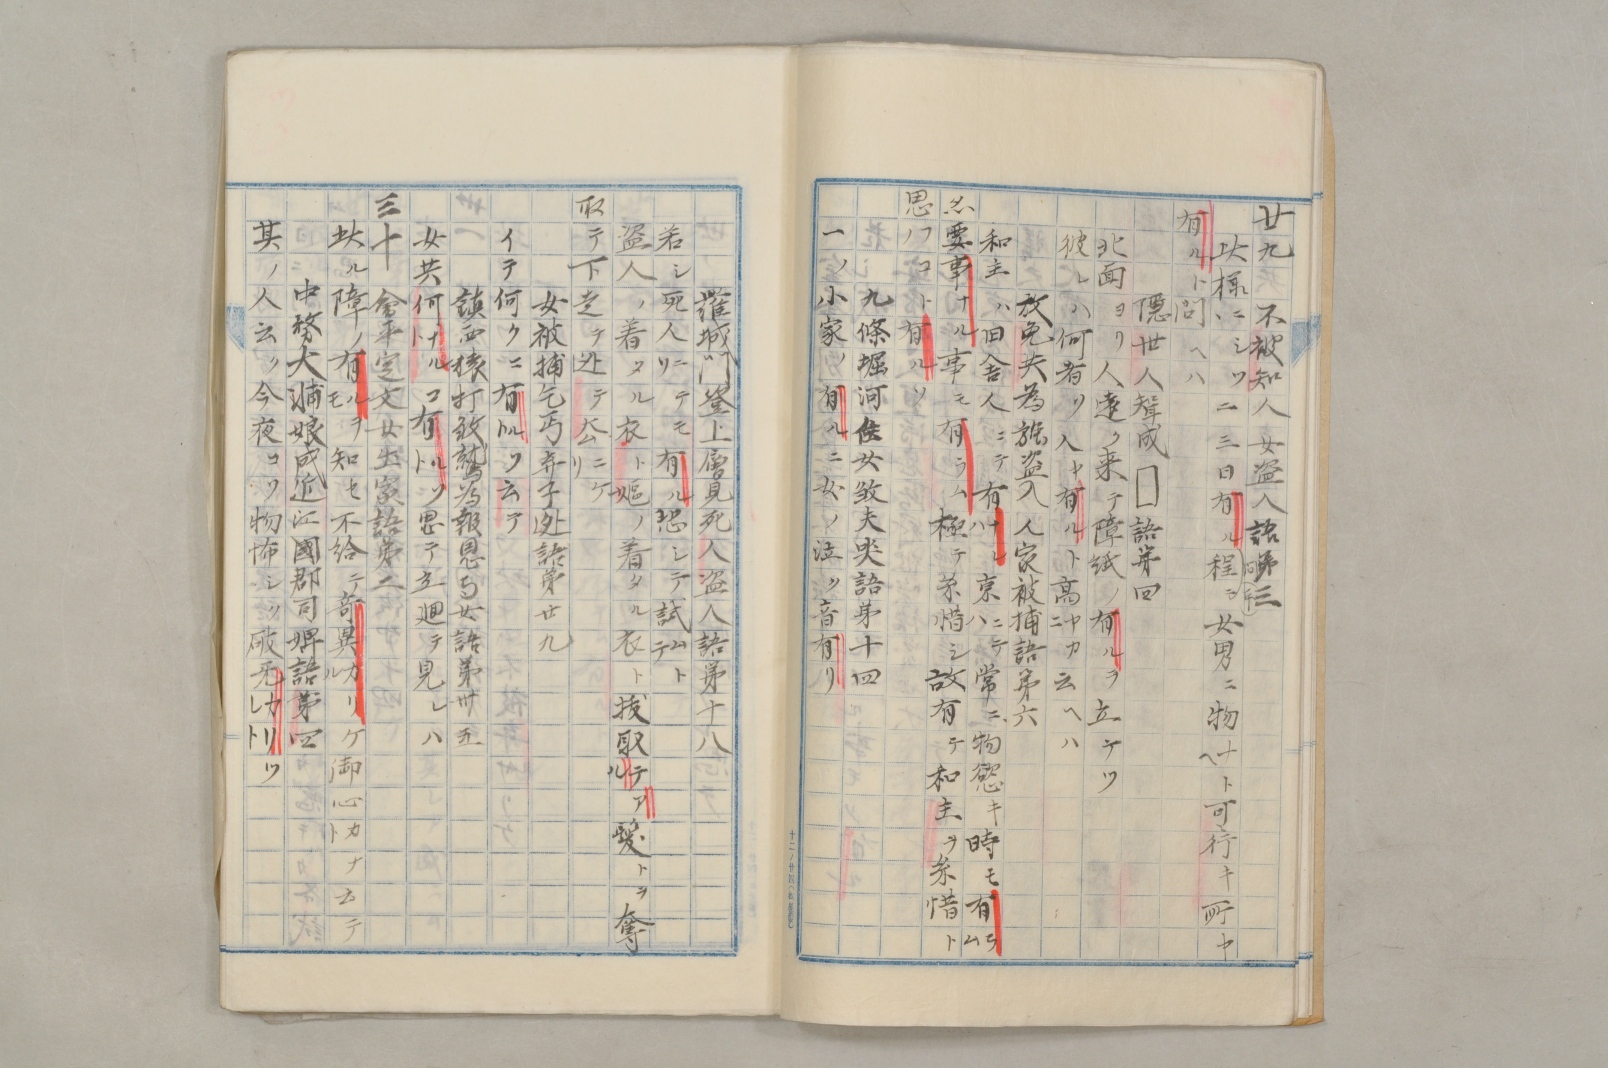 廿九 不被知人女盗人語第三
此様ニシツ二三日有ル程ニ女男ニ物ナト可行キ所ヤ
有ルト問ヘハ
隠世人聟成□語第四
北面ヨリ人遠ク来テ障紙ノ有ルヲ立テツ
彼レハ何者ソ人ヤ有ルト高ヤカニ云ヘハ
放免共為強盗入人家被捕語第六
和主ハ旧舎人ニテ有ナレハ京ニテ常ニ物慾キ時モ有ラム
要事ナル事モ有ラム極テ糸惜シ故有テ和主ヲ糸惜ト
思フコト有ルソ
九條堀河住女殺夫哭語第十四
一ノ小家ノ有ルニ女ノ泣ク音有リ
羅城門登上層見死人盗人語第十八
若シ死人ニテモソ有ル恐シテ試ムト
盗人ノ着タル衣ト嫗ノ着タル衣ト抜取テアル髪トヲ奪
取テ下走テ迯テ去ニケリ
女被捕乞丐弃子迯語第廿九
イテ何クニ有ルソト云テ
鎮西猿打殺鷲為報恩与女語第卅五
女共何ナルコト有ルソト思テ立廻テ見レハ
三十 会平定文女出家語第二
此ル障ノ有ルヲモ知セ不給テ奇異カリケル御心カナト云テ
中務大輔娘成近江國郡司婢語第四
其ノ人云ク今夜コソ物怖シク破无カリツレト